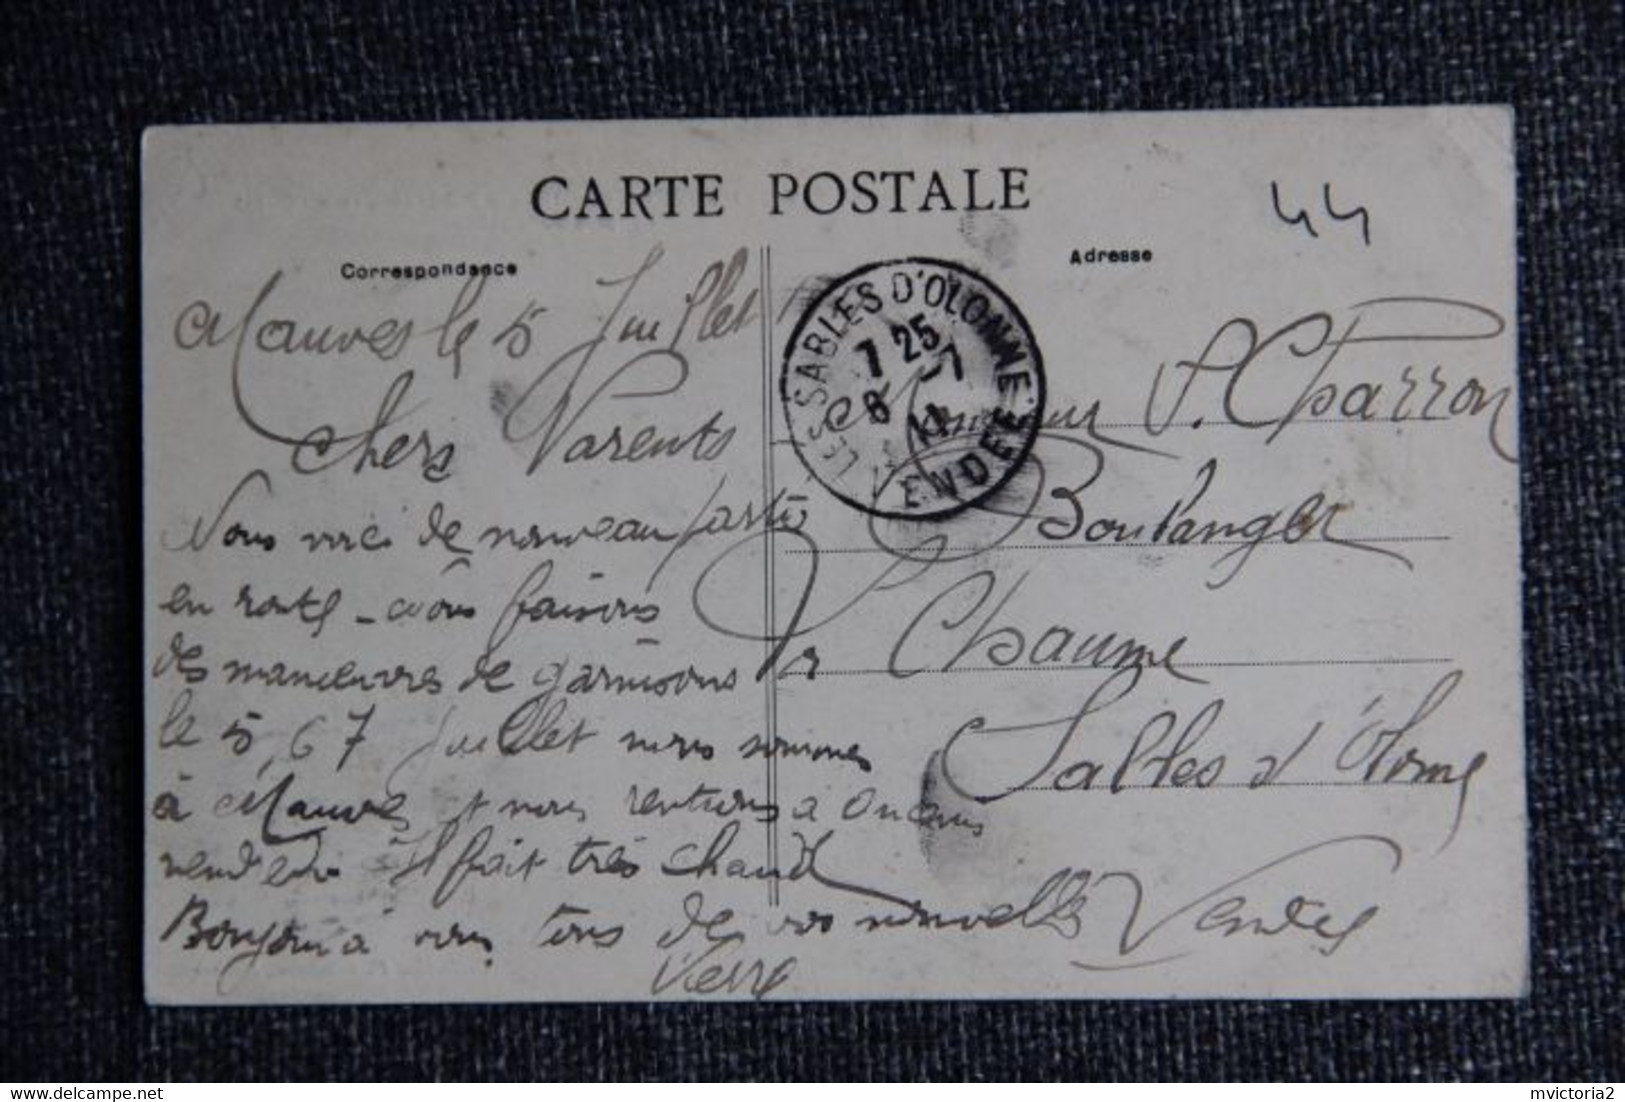 CARTE POSTALE
44
Correspondance
Adresse
Mauves le 5 Juillet
Chers Parents
Nous voici de nouveau partis
en route - Nous faisons
des manœuvres de garnisons
le 5, 6 7 Juillet nous sommes
à Mauves et nous rentrons à Ancenis
vendredi Il fait très chaud
Bonjour à vous tous de vos nouvelles
Pierre
LES SABLES D'OLONNE
7 25
6 -7
11
VENDEE
Monsieur P. Charron
Boulanger
La Chaume
Sables d'Olonne
Vendée
delcampe.net
mvictoria2